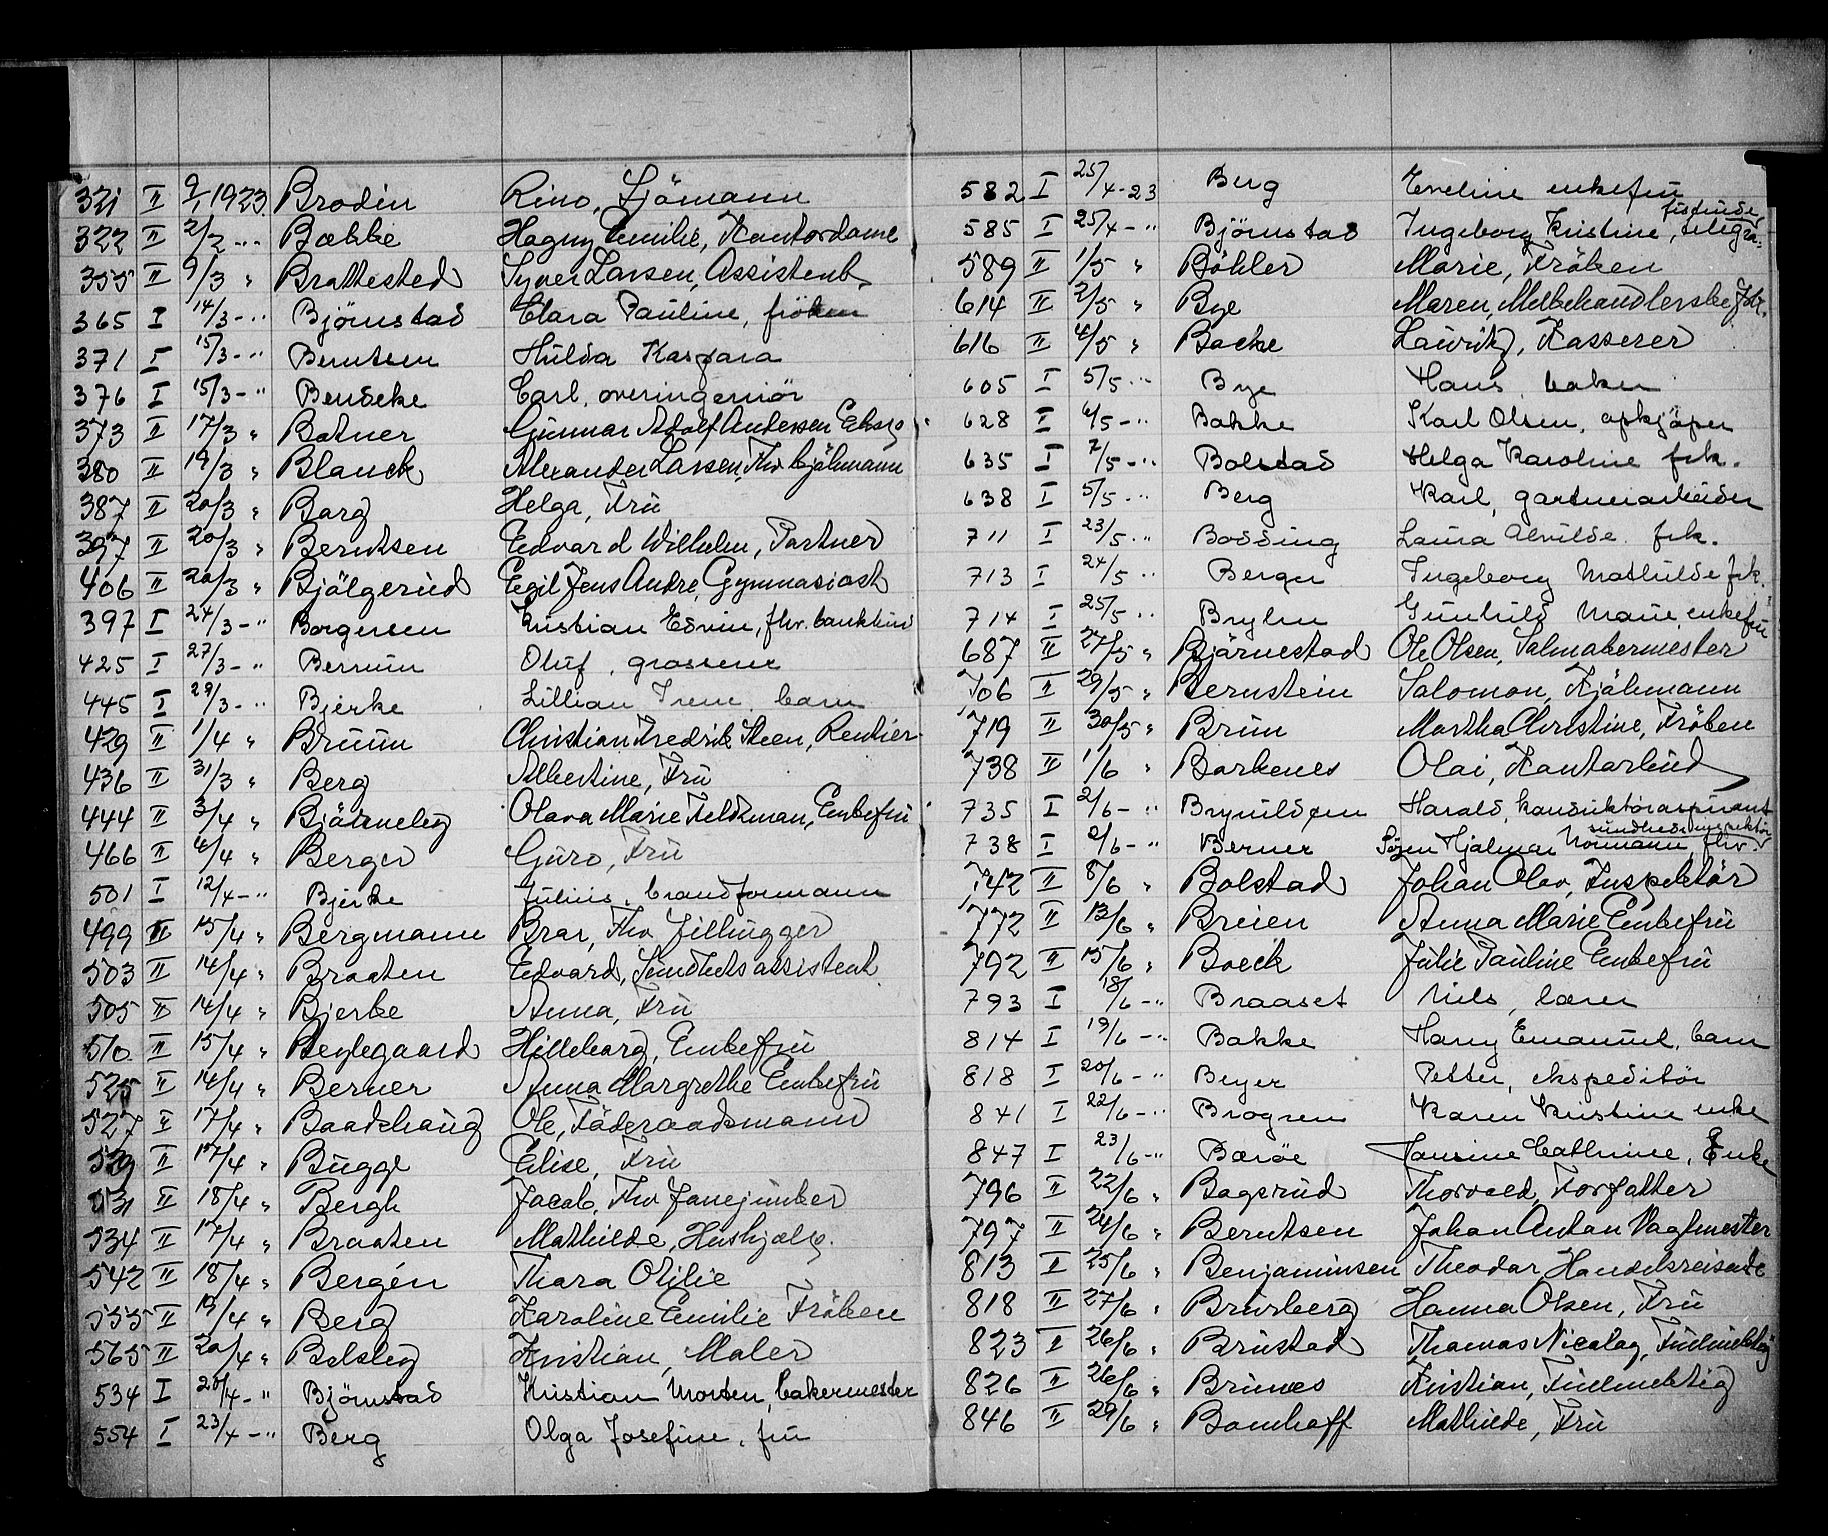 321 II 9/1 1923 Brodin Rino, Sjömann
322 II 2/2 -"- Bakke Hagny Emilie, Kontordame
355 II 9/3 " Brattested Syver Larsen, Assistent
365 I 14/3 -" Björnstad Clara Pauline, fröken
371 I 15/3 -" Berntsen Hulda Kaspara
376 I 15/3 -" Bendeke Carl, overingeniör
373 II 17/3 " Botner Gunnar Adolf Andersen
380 II 19/3 " Blanck Alexander Larsen, Fhv. kjöbmann
387 II 20/3 " Borg Helga, Fru
397 II 20/3 " Berntsen Edvard Wilhelm, Partner
406 II 20/3 " Bjölgerud Egil Jens Andre, Gymnasiast
397 I 24/3 -" Borgersen Kristian Edvin, fhv. bankbud
425 I 27/3 -" Oluf, grosserer
445 I 29/3 -" Bjerke Lillian Irene, barn
429 II 1/4 " Bruun Christian Fredrik Steen, Rentier
436 II 31/3 " Berg Albertine, Fru
444 II 3/4 " Olava Marie Feldman, Enkefru
466 II 4/4 " Berger Guro, Fru
501 I 12/4 -" Bjerke Julius, brandformann
499 II 15/4 " Bergmann Brar, Fhv. filhugger
503 II 14/4 " Braaten Edvard, Sundhetsassistent
505 II 14/4 " Bjerke Anna, Fru
510 II 15/4 " Beylegaard Hilleborg, Enkefru
525 II 14/4 " Berner Anna Margrethe Enkefru
527 II 17/4 " Baadshaug Ole, Föderaadsmann
529 II 17/4 " Bugge Elise, Fru
531 II 18/4 " Bergh Jacob, Fhv
534 II 17/4 " Braaten Mathilde, Hushjælp.
542 II 18/4 " Bergén Thora Otilie
555 II 19/4 " Berg Karoline Emilie Fröken
565 II 20/4 " Belsby Kristian, Maler
534 I 20/4 -" Björnstad Kristian Morten, bakermester
554 I 23/4 -" Berg Olga Josefine, fru
582 I 25/4-23 Berg Eveline enkefru
585 I 25/4 -" Björnstad Ingeborg Kristine, telegra- fistinde
589 II 1/5 " Böhler Marie, Fröken
614 II 2/5 " Bye Maren, Melkehandlerske, fhv.
616 II 4/5 " Backe Lauritz, Kasserer
605 I 5/5 -" Bye Hans, baker
628 I 6/5 -" Bakke Karl Olsen, opkjöper
635 I 7/5 -" Bolstad Helga Karoline frk.
638 I 5/5 -" Berg Karl, gartnerarbeider
711 I 23/5 -" Bodding Laura Alvilde, frk.
713 I 24/5 " Berger Ingeborg Mathilde frk.
714 I 25/5 " Gunhild Marie, enkefru
687 II 27/5 " Björnestad Ole Olsen, Salmakermester
706 II 29/5 " Bernstein Salomon, Kjöbmann
719 II 30/5 " Brun Martha Christine, Fröken
738 II 1/6 " Barkenes Olai, Kontorbud
735 I 2/6 -" Brynildsen Harald, konduktöraspirant
738 I 2/6 -" Berner Sören Hjalmar Normann fhv. sundhedsinspektör
742 II 8/6 " Bolstad Johan Olav, Inspektör
772 II 13/6 " Breien Anna Marie Enkefru
792 II 15/6 " Boeck Julie Pauline Enkefru
793 I 18/6 -" Braaset Nils, lærer
814 I 19/6 -" Bakke Harry Emanuel, barn
818 I 20/6 -" Beyer Petter, ekspeditör
841 I 22/6 -" Brogren Karen Kristine enke
847 I 23/6 -" Bærøe Jensine Cathrine, Enke
796 II 22/6 " Bogsrud Thorvald, Forfatter
797 II 24/6 " Berntsen Johan Anton Vagtmester
813 II 25/6 " Benjaminsen Theodor Handelsreisende
818 II 27/6 " Brusberg Hanna Olsen, Fru
823 II 26/6 " Brustad Thomas Nicolay, Fuldmektig
826 II 26/6 " Brunes Kristian, Fuldmektig
846 II 29/6 " Bomhoff Mathilde, Fru